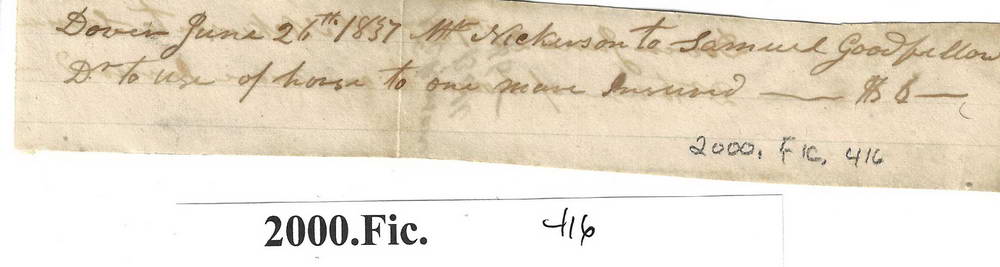 Dover June 26th 1837 Mr Nickerson to Samuel Goodfellow
Dr to use of horse to one mare Insured — $ 6 —
2000. FIC. 416
2000.Fic. 416